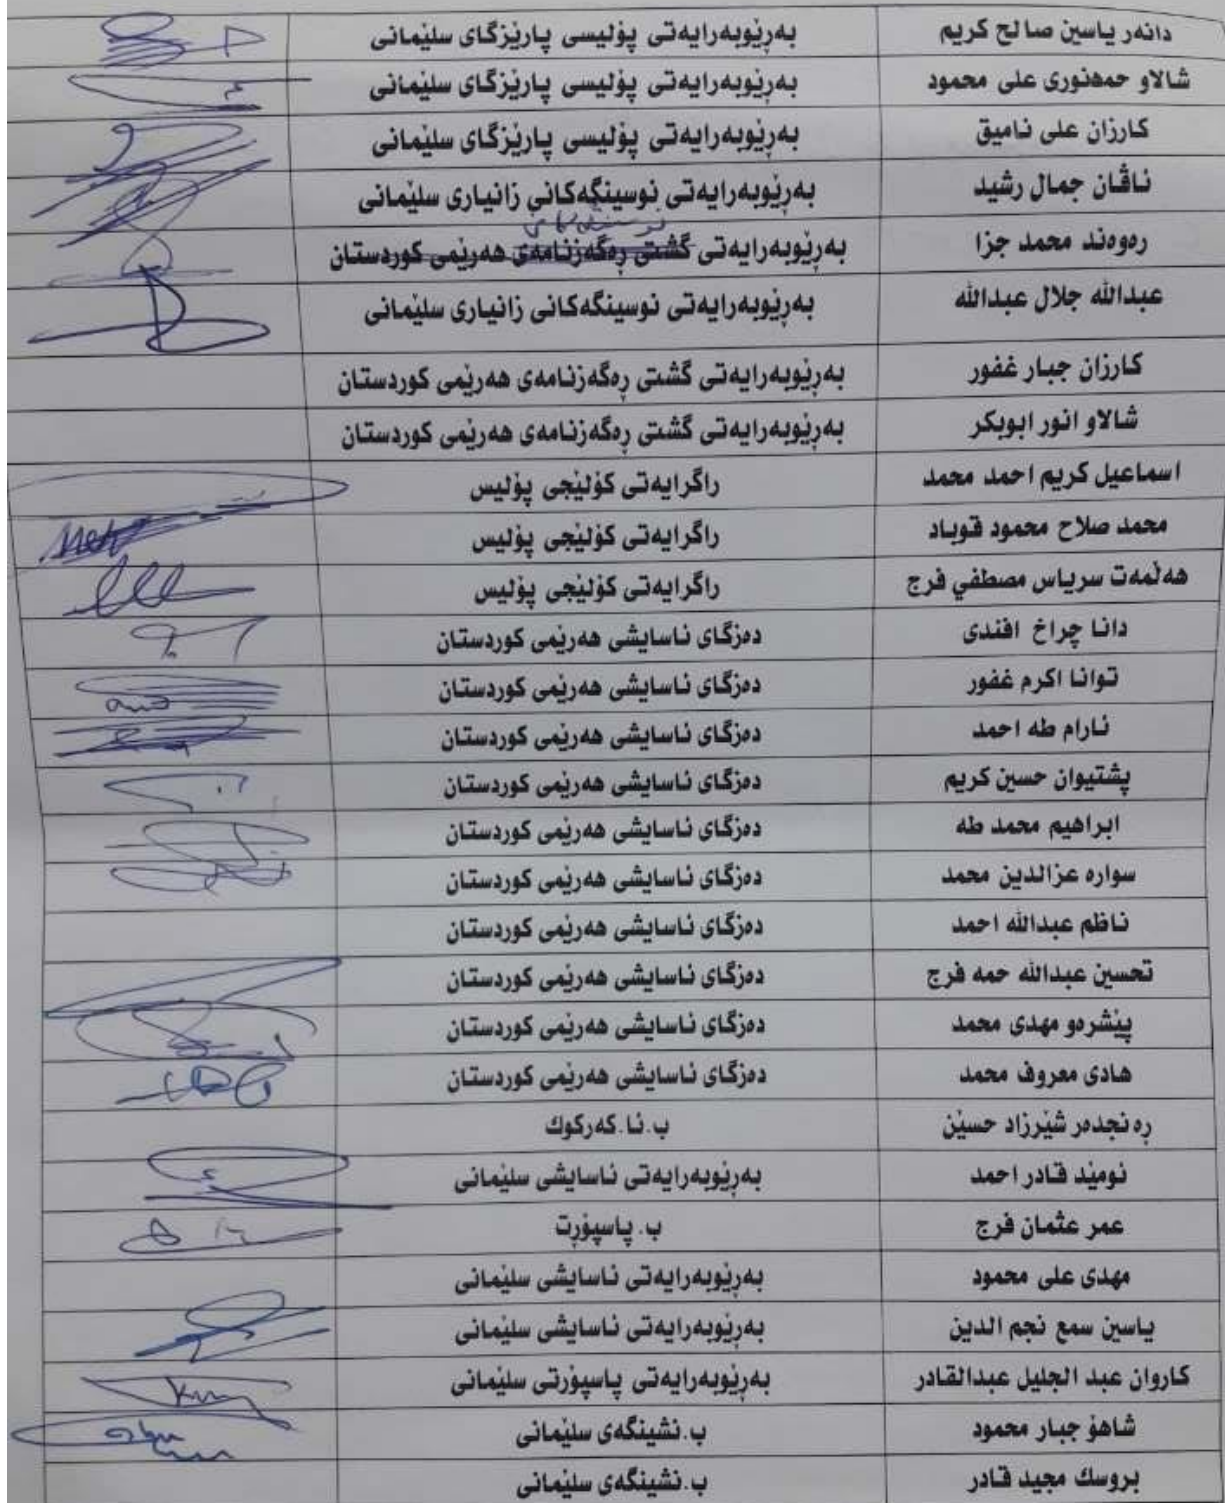 دانەر ياسين صالح كريم بەرێوبەرايەتى پۆليسى پارێزگاى سلێمانى
شالاو حمەنورى على محمود بەرێوبەرايەتى پۆليسى پارێزگاى سلێمانى
كارزان على ناميق بەرێوبەرايەتى پۆليسى پارێزگاى سلێمانى
ئاڤان جمال رشيد بەرێوبەرايەتى نوسينگەكانى زانيارى سلێمانى
رەوەند محمد جزا بەرێوبەرايەتى گشتى ڕەگەزنامەى هەرێمى كوردستان
عبدالله جلال عبدالله بەرێوبەرايەتى نوسينگەكانى زانيارى سلێمانى
كارزان جبار غفور بەرێوبەرايەتى گشتى ڕەگەزنامەى هەرێمى كوردستان
شالاو انور ابوبكر بەرێوبەرايەتى گشتى ڕەگەزنامەى هەرێمى كوردستان
اسماعيل كريم احمد محمد راگرايەتى كۆلێجى پۆليس
محمد صلاح محمود قوباد راگرايەتى كۆلێجى پۆليس
هەڵمەت سرياس مصطفي فرج راگرايەتى كۆلێجى پۆليس
دانا چراخ افندى دەزگاى ئاسايشى هەرێمى كوردستان
توانا اكرم غفور دەزگاى ئاسايشى هەرێمى كوردستان
ئارام طه احمد دەزگاى ئاسايشى هەرێمى كوردستان
پشتيوان حسين كريم دەزگاى ئاسايشى هەرێمى كوردستان
ابراهيم محمد طه دەزگاى ئاسايشى هەرێمى كوردستان
سواره عزالدين محمد دەزگاى ئاسايشى هەرێمى كوردستان
ناظم عبدالله احمد دەزگاى ئاسايشى هەرێمى كوردستان
تحسين عبدالله حمه فرج دەزگاى ئاسايشى هەرێمى كوردستان
پێشرەو مهدى محمد دەزگاى ئاسايشى هەرێمى كوردستان
هادى معروف محمد دەزگاى ئاسايشى هەرێمى كوردستان
ڕەنجدەر شێرزاد حسێن ب.ئا.كەركوك
ئومێد قادر احمد بەرێوبەرايەتى ئاسايشى سلێمانى
عمر عثمان فرج ب. پاسپۆرت
مهدى على محمود بەرێوبەرايەتى ئاسايشى سلێمانى
ياسين سمع نجم الدين بەرێوبەرايەتى ئاسايشى سلێمانى
كاروان عبد الجليل عبدالقادر بەرێوبەرايەتى پاسپۆرتى سلێمانى
شاهۆ جبار محمود ب.نشينگەى سلێمانى
بروسك مجيد قادر ب.نشينگەى سلێمانى